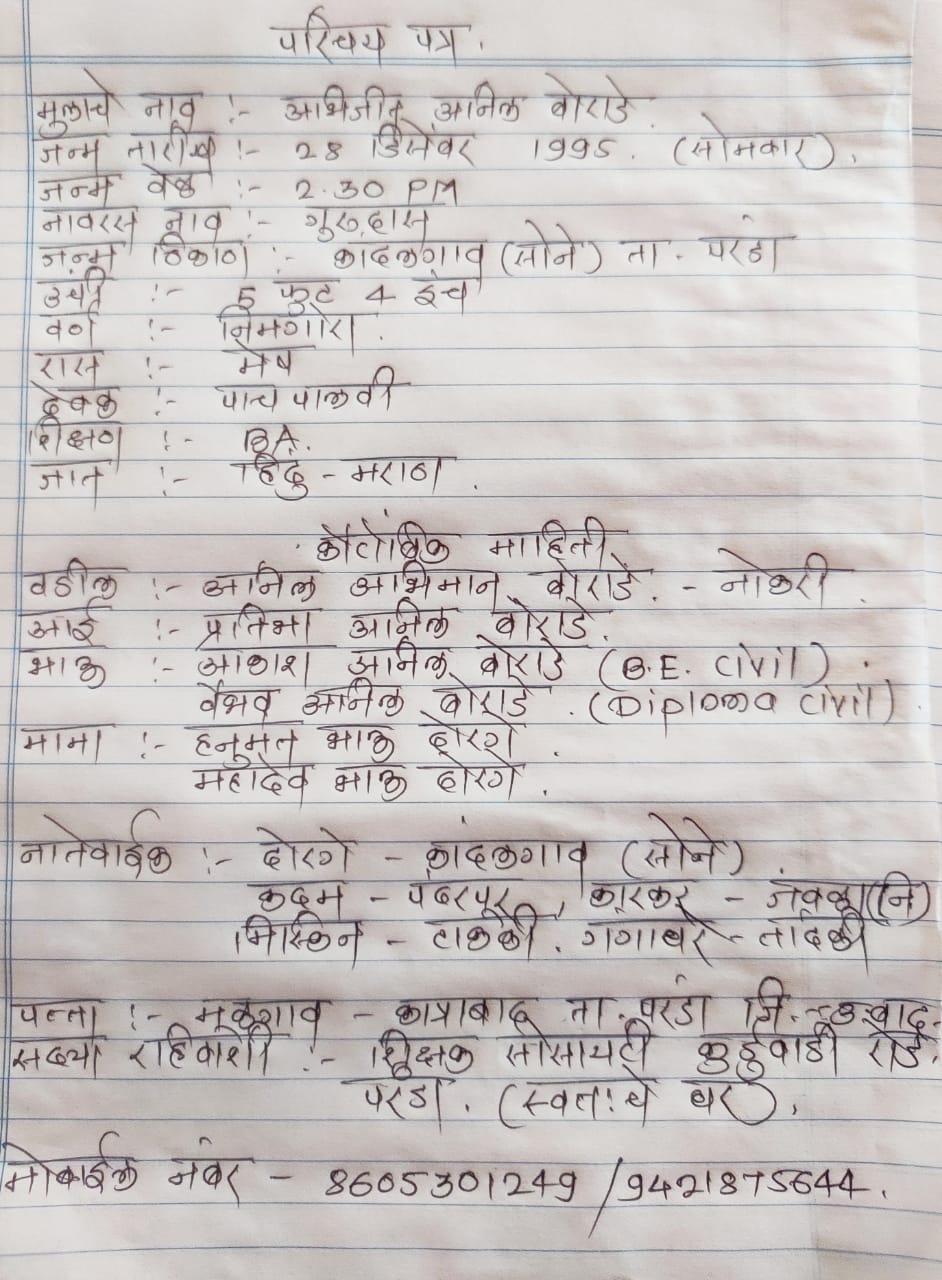 परिचय पत्र.
मुलाचे नाव :- अभिजीत अनिल बोराडे.
जन्म तारीख :- 28 डिसेंबर 1995. (सोमवार).
जन्म वेळ :- 2.30 PM
नावरस नाव :- गुरुदास
जन्म ठिकाण :- कांदलगाव (सोने) ता. परंडा
उंची :- 5 फुट 4 इंच
वर्ण :- निमगोरा.
रास :- मेष
देवक :- पाच पालवी
शिक्षण :- B.A.
जात :- हिंदु - मराठा.
कौटोंबिक माहिती
वडील :- अनिल अभिमान बोराडे. - नोकरी.
आई :- प्रतिभा अनिल बोराडे.
भाऊ :- आकाश अनिल बोराडे (B.E. civil).
वैभव अनिल बोराडे. (Diploma civil).
मामा :- हनुमंत भाऊ दोरगे.
महादेव भाऊ दोरगे.
नातेवाईक :- दोरगे - कांदलगाव (सोने).
कदम - पंढरपूर, कारकर - जवळा(नि)
मिस्किन - टाकळी. गंगाधरे - तांदळी
पत्ता :- मूळगाव - कात्राबाद ता. परंडा जि.-उ.बाद.
सध्या राहिवाशी :- शिक्षक सोसायटी कुर्डुवाडी रोड.
परंडा. (स्वतःचे घर).
मोबाईल नंबर - 8605301249 /9421875644.